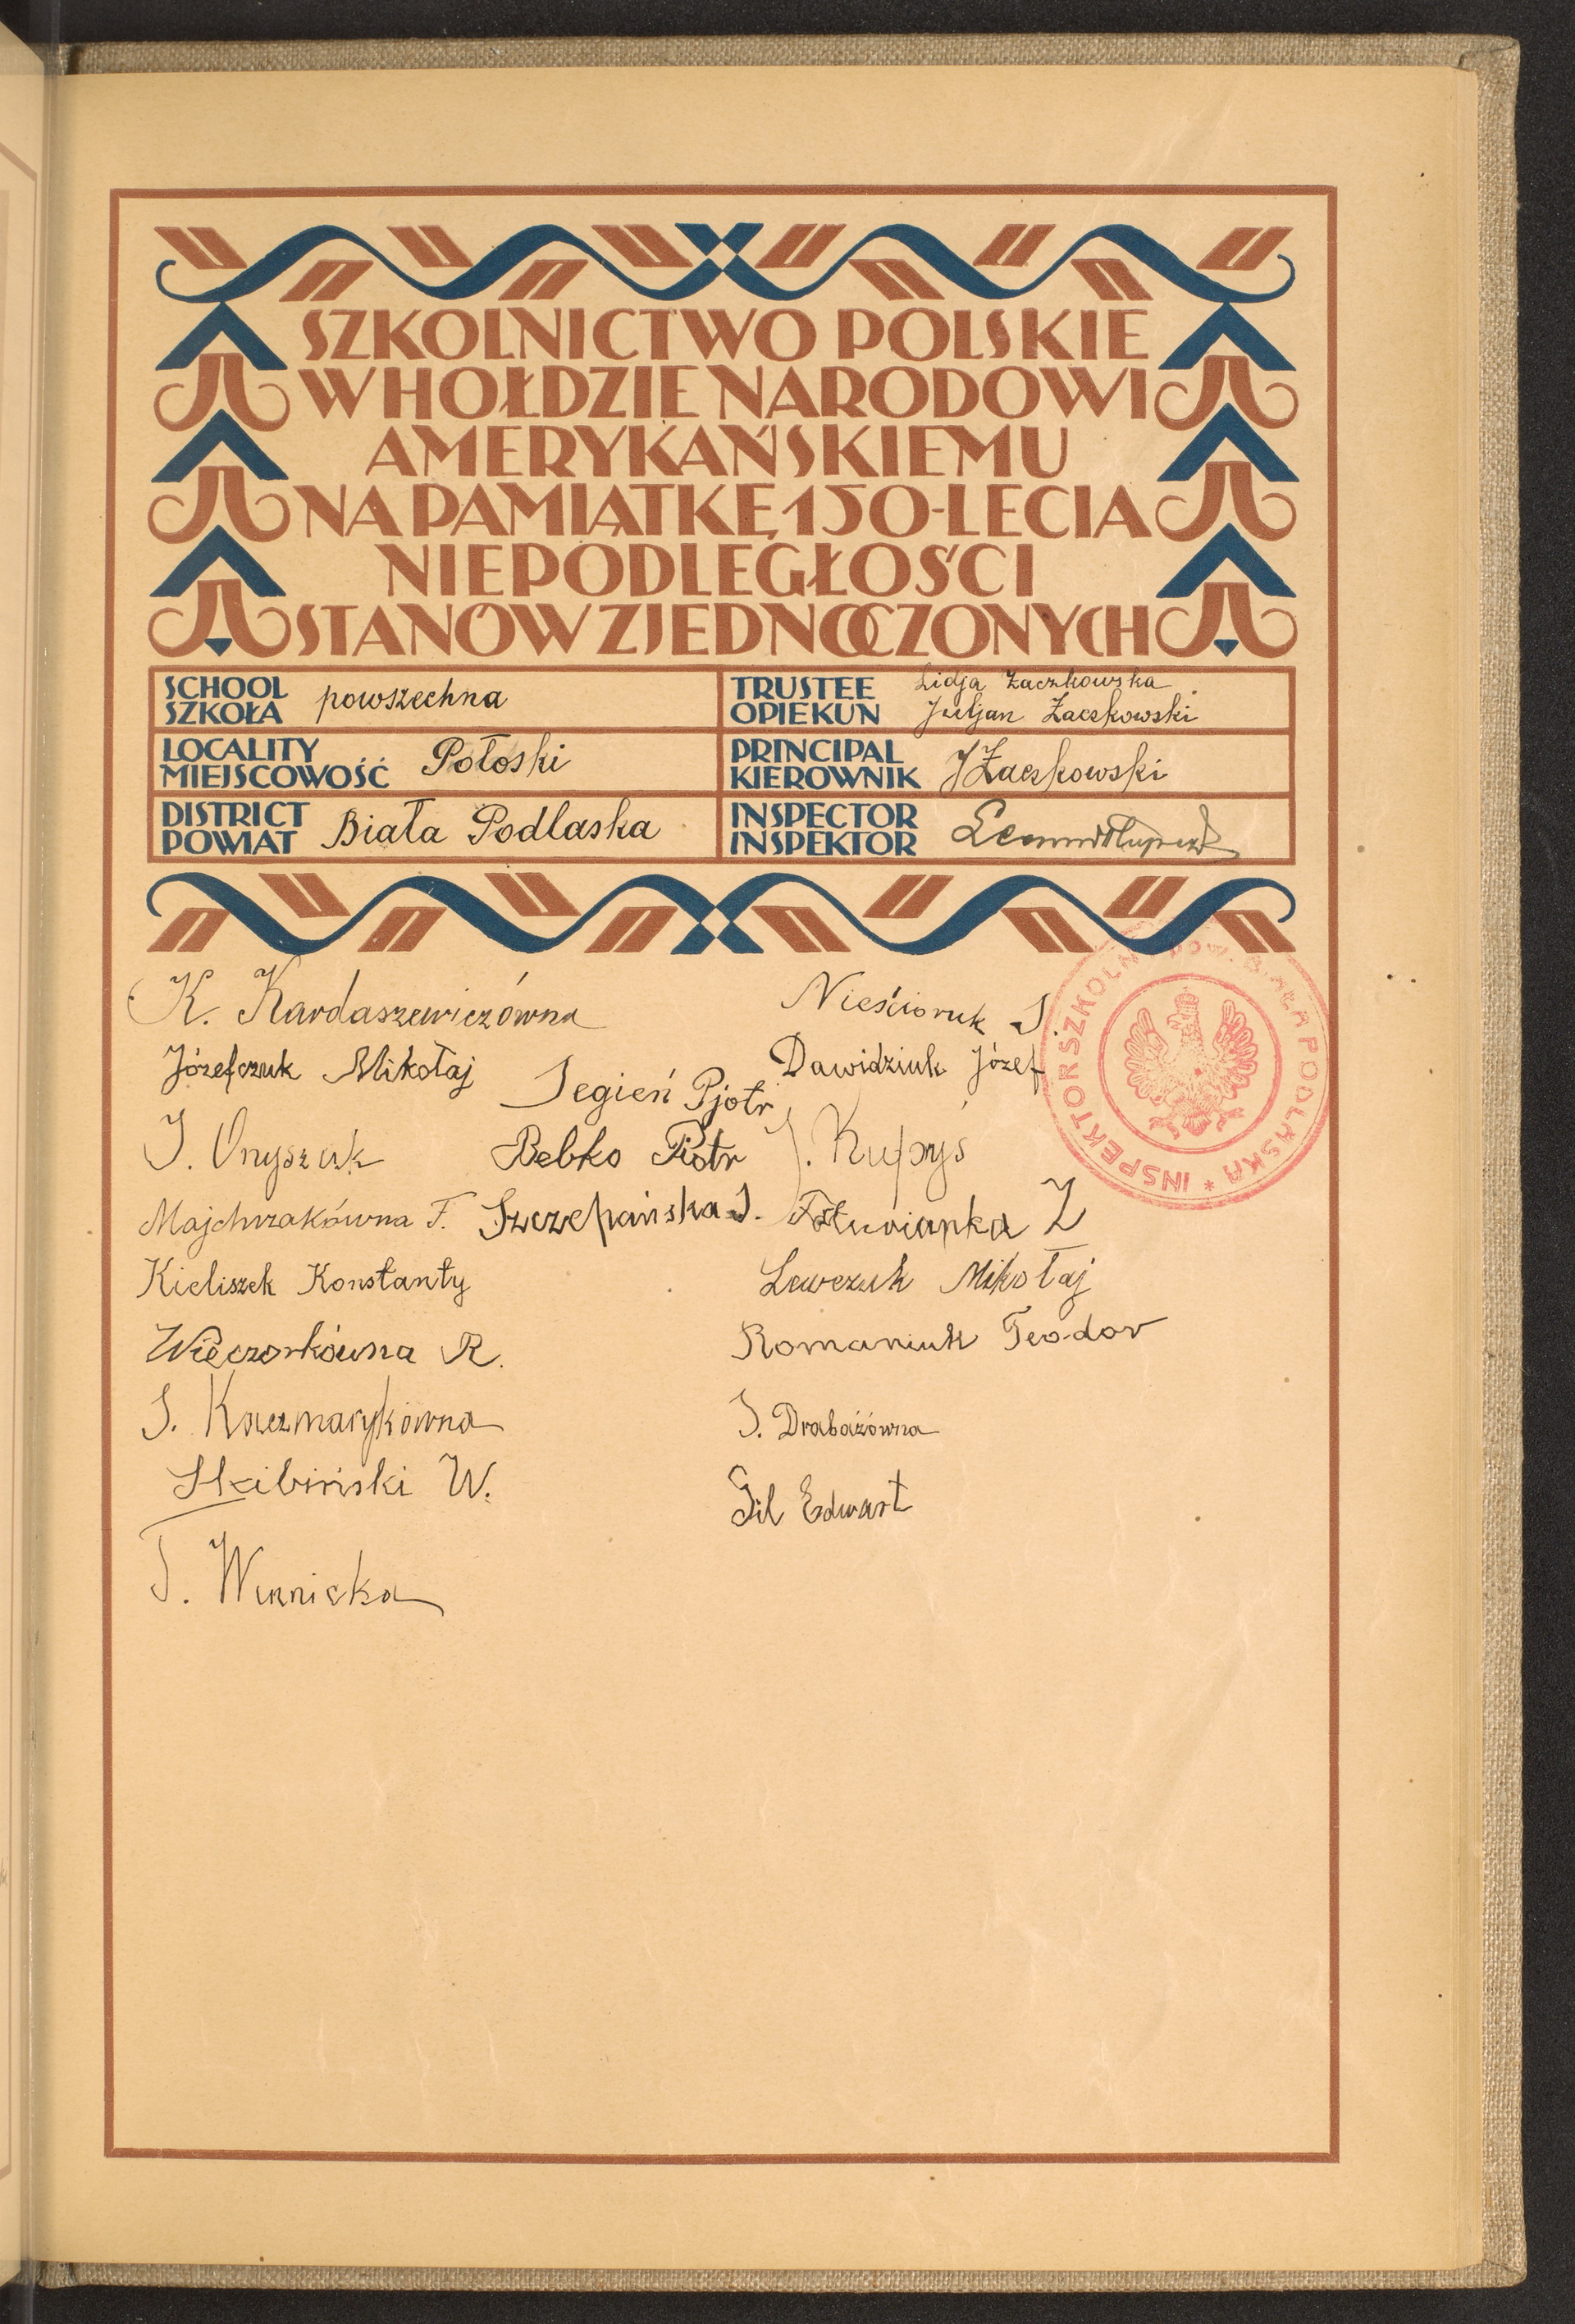 SZKOLNICTWO POLSKIE
W HOŁDZIE NARODOWI
AMERYKAŃSKIEMU
NA PAMIĄTKĘ 150-LECIA
NIEPODLEGŁOŚCI
STANÓW ZJEDNOCZONYCH
SCHOOL
SZKOŁA
powszechna
TRUSTEE
OPIEKUN
Lidja Zaczkowska
Juljan Zaczkowski
LOCALITY
MIEJSCOWOŚĆ
Połoski
PRINCIPAL
KIEROWNIK
J Zaczkowski
DISTRICT
POWIAT
Biała Podlaska
INSPECTOR
INSPEKTOR
INSPEKTOR SZKOLNY POW. BIAŁA PODLASKA *
K. Kardaszewiczówna
Nieścioruk J.
Józefczuk Mikołaj
Dawidziuk Józef
Segień Pjotr
J. Onyszuk
Bebko Piotr
J. Kupryś
Majchrzakówna F.
Szczepańska J.
Z
Kieliszek Konstanty
Lewczuk Mikołaj
Wieczorkówna R.
Romaniuk Teodor
J. Kaczmarykówna
J. Drabażówna
Skibiński W.
Gil Edwart
T. Winnicka